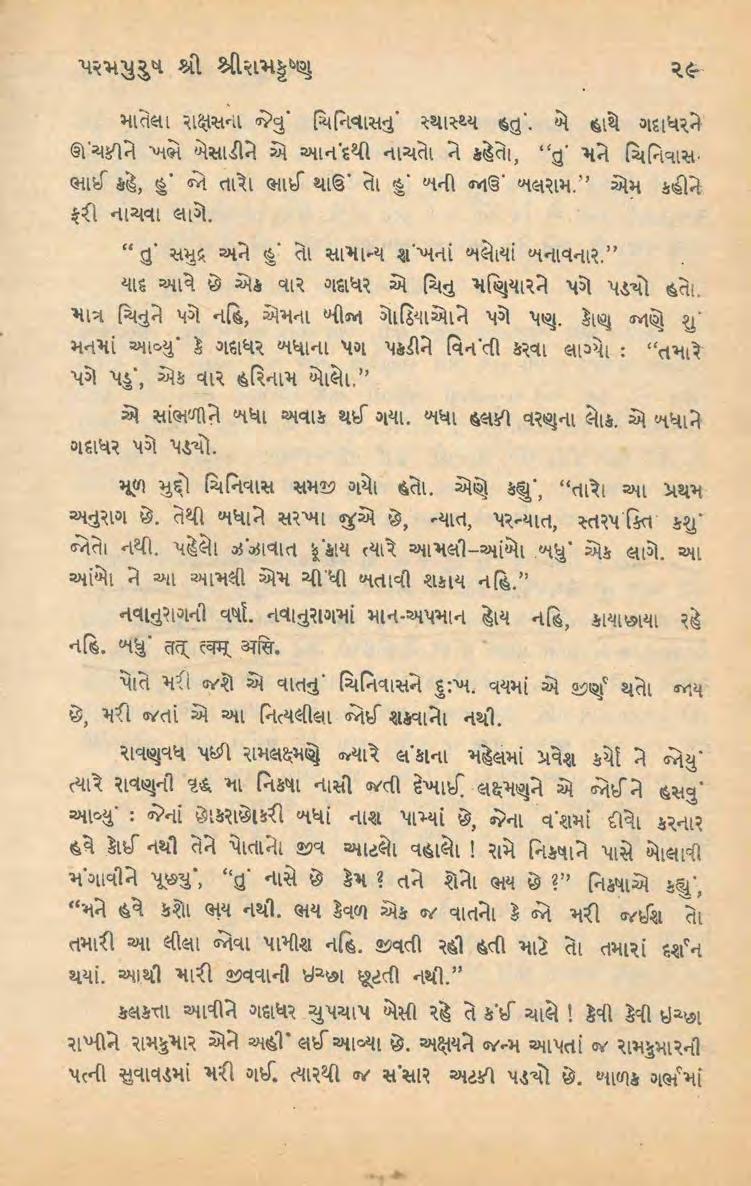 પરમપુરુષ શ્રી શ્રીરામકૃષ્ણ ૨૯
માતેલા રાક્ષસના જેવું ચિનિવાસનું સ્થાસ્થ્ય હતું. બે હાથે ગદાધરને
ઊંચકીને ખભે બેસાડીને એ આનંદથી નાચતો ને કહેતો, “તું મને ચિનિવાસ-
ભાઈ કહે, હું જો તારો ભાઈ થાઉં તો હું બની જાઉં બલરામ.” એમ કહીને
ફરી નાચવા લાગે.
“તું સમુદ્ર અને હું તો સામાન્ય શંખનાં બલોયાં બનાવનાર.”
યાદ આવે છે એક વાર ગદાધર એ ચિનુ મણિયારને પગે પડ્યો હતો.
માત્ર ચિનુને પગે નહિ, એમના બીજા ગોઠિયાઓને પગે પણ. કોણ જાણે શું
મનમાં આવ્યું કે ગદાધર બધાના પગ પકડીને વિનંતી કરવા લાગ્યો : “તમારે
પગે પડું, એક વાર હરિનામ બોલો.”
એ સાંભળીને બધા અવાક થઈ ગયા. બધા હલકી વરણના લોક. એ બધાને
ગદાધર પગે પડ્યો.
મૂળ મુદ્દો ચિનિવાસ સમજી ગયો હતો. એણે કહ્યું, “તારો આ પ્રથમ
અનુરાગ છે. તેથી બધાને સરખા જુએ છે, ન્યાત, પરન્યાત, સ્તરપંક્તિ કશું
જોતો નથી. પહેલો ઝંઝાવાત ફૂંકાય ત્યારે આમલી–આંબો બધું એક લાગે. આ
આંબો ને આ આમલી એમ ચીંધી બતાવી શકાય નહિ.”
નવાનુરાગની વર્ષા. નવાનુરાગમાં માન-અપમાન હોય નહિ, કાયાછાયા રહે
નહિ. બધું તત્ ત્વમ્ અસિ.
પોતે મરી જશે એ વાતનું ચિનિવાસને દુ:ખ. વયમાં એ જીર્ણ થતો જાય
છે, મરી જતાં એ આ નિત્યલીલા જોઈ શકવાનો નથી.
રાવણવધ પછી રામલક્ષ્મણે જ્યારે લંકાના મહેલમાં પ્રવેશ કર્યો ને જોયું
ત્યારે રાવણની વૃદ્ધ મા નિકષા નાસી જતી દેખાઈ. લક્ષ્મણને એ જોઈને હસવું
આવ્યું : જેનાં છોકરાછોકરી બધાં નાશ પામ્યાં છે, જેના વંશમાં દીવો કરનાર
હવે કોઈ નથી તેને પોતાનો જીવ આટલો વહાલો ! રામે નિકષાને પાસે બોલાવી
મંગાવીને પૂછ્યું, “તું નાસે છે કેમ ? તને શેનો ભય છે ?” નિકષાએ કહ્યું,
“મને હવે કશો ભય નથી. ભય કેવળ એક જ વાતનો કે જો મરી જઈશ તો
તમારી આ લીલા જોવા પામીશ નહિ. જીવતી રહી હતી માટે તો તમારાં દર્શન
થયાં. આથી મારી જીવવાની ઇચ્છા છૂટતી નથી.”
કલકત્તા આવીને ગદાધર ચુપચાપ બેસી રહે તે કંઈ ચાલે ! કેવી કેવી ઇચ્છા
રાખીને રામકુમાર એને અહીં લઈ આવ્યા છે. અક્ષયને જન્મ આપતાં જ રામકુમારની
પત્ની સુવાવડમાં મરી ગઈ. ત્યારથી જ સંસાર અટકી પડ્યો છે. બાળક ગર્ભમાં